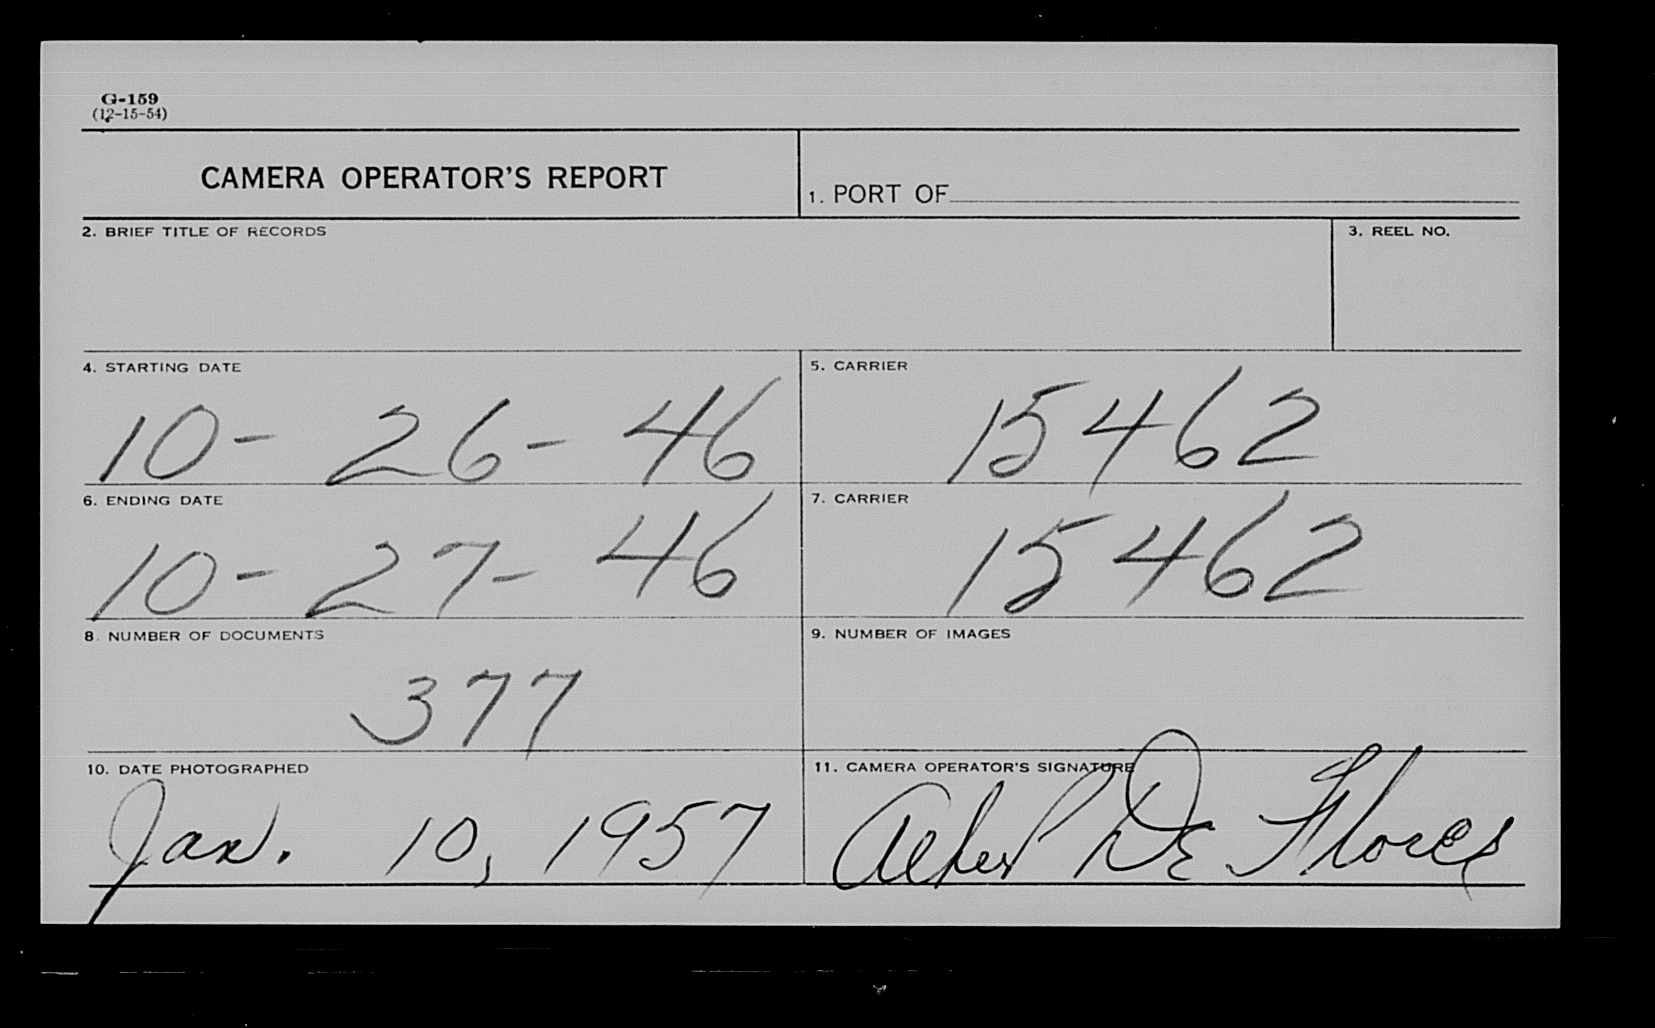 G-159
(12-15-54)
CAMERA OPERATOR'S REPORT
1. PORT OF
2. BRIEF TITLE OF RECORDS
3. REEL NO.
4. STARTING DATE
10- 26-46
5. CARRIER
15462
6. ENDING DATE
10-27-46
7. CARRIER
15462
8. NUMBER OF DOCUMENTS
377
9. NUMBER OF IMAGES
10. DATE PHOTOGRAPHED
Jan. 10, 1957
11. CAMERA OPERATOR'S SIGNATURE
De Flores